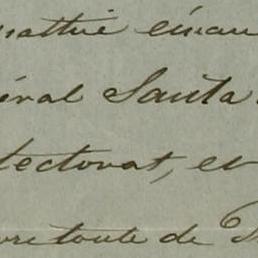 pathie éman
éral Santa
tectorat, et
toute de